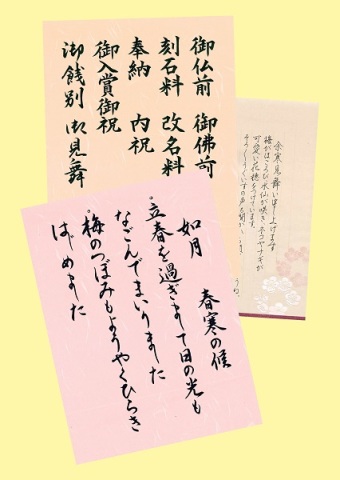 御仏前 御佛前
刻石料 改名料
奉納 内祝
御入賞御祝
御餞別 御見舞
余寒見舞い申し上げます
梅がほころび水仙が咲き ネコヤナギが
可愛い花穂をつけています。
如月 春寒の候
立春を過ぎまして日の光も
なごんでまいりました
梅のつぼみもようやくひらき
はじめました